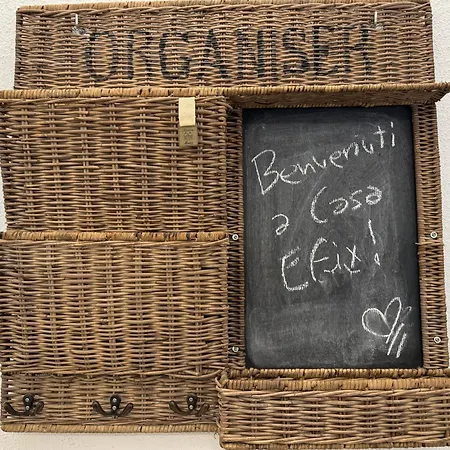 ORGANISER
Benvenuti
a Casa
Efix!